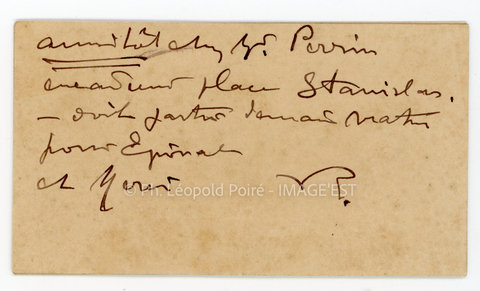 aussitôt chez Mr. Perrin
encadreur place Stanislas.
– doit partir demain matin
pour Epinal
et Merci
© Ph. Léopold Poiré - IMAGE'EST